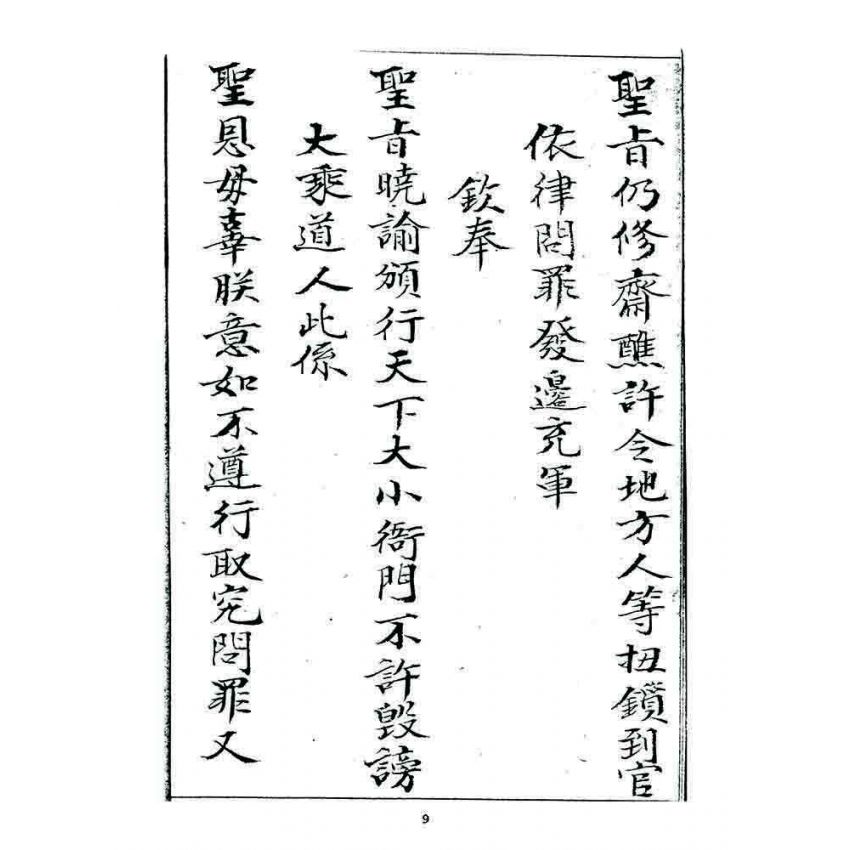 聖旨仍修齋醮許令地方人等扭鎖到官
依律問罪發邊充軍
欽奉
聖旨曉諭頒行天下大小衙門不許毀謗
大乘道人此係
聖恩毋辜朕意如不遵行取究問罪又
9